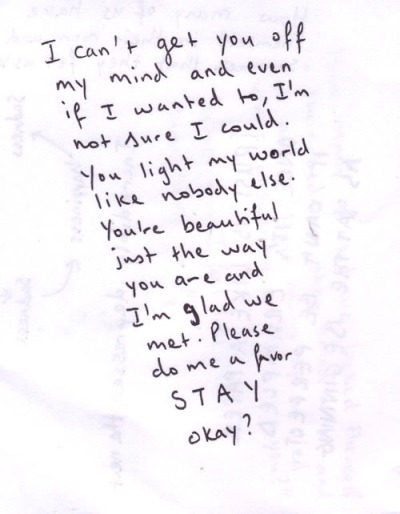 I can't get you off
my mind and even
if I wanted to, I'm
not sure I could.
You light my world
like nobody else.
You're beautiful
just the way
you are and
I'm glad we
met. Please
do me a favor
STAY
okay?